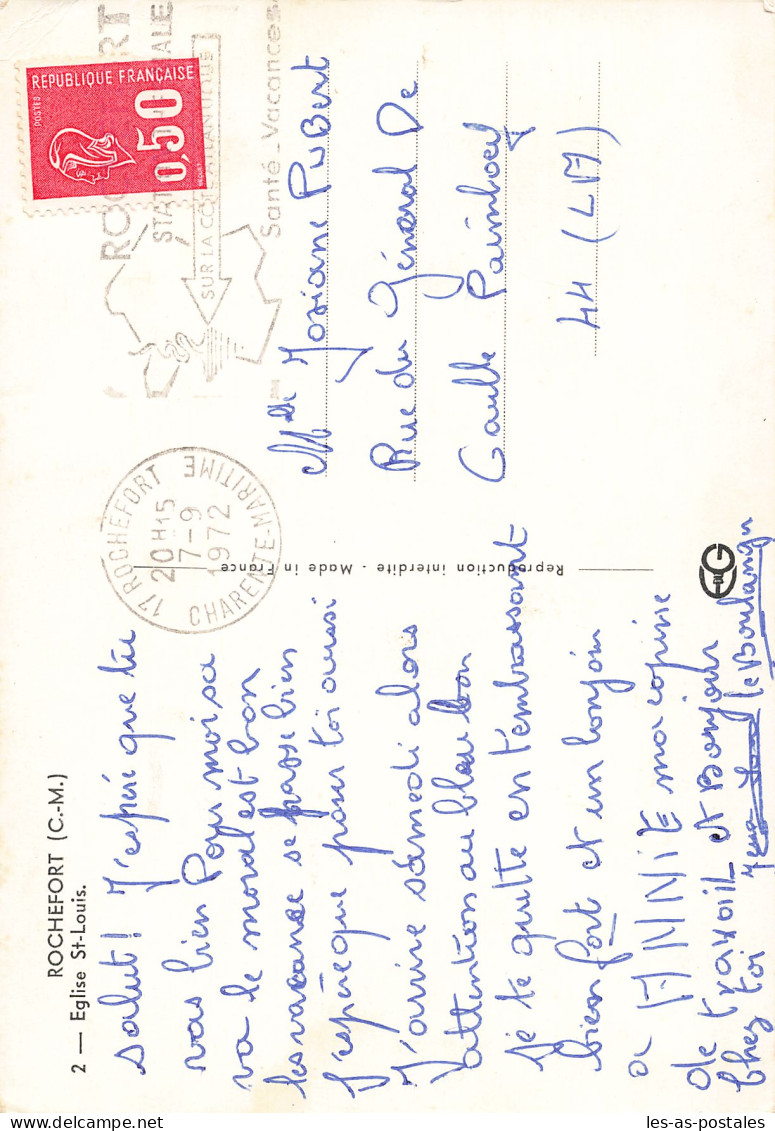 ROCHEFORT (C.-M.)
2 — Eglise St-Louis.
salut! J'espère que tu
vas bien Pour moi sa
va le moral est bon
les vacance se passe bien
J'espère que pour toi aussi
J'arrive samedi alors
attention au bleu bon
Je te quitte en t'embrassant
bien fort et un bonjoin
a ANNIE ma copine
de travail et Bonjour
chez toi le Boulanger
Reproduction interdite - Made in France
EDUG
17 ROCHEFORT
20H15
7-9
1972
CHARENTE-MARITIME
SUR LA CÔTE ATLANTIQUE
Santé-Vacances
REPUBLIQUE FRANÇAISE
POSTES
0,50
Mlle Josiane PuBert
Rue du Général De
Gaulle Paimboeuf
44 (LA)
les-as-postales